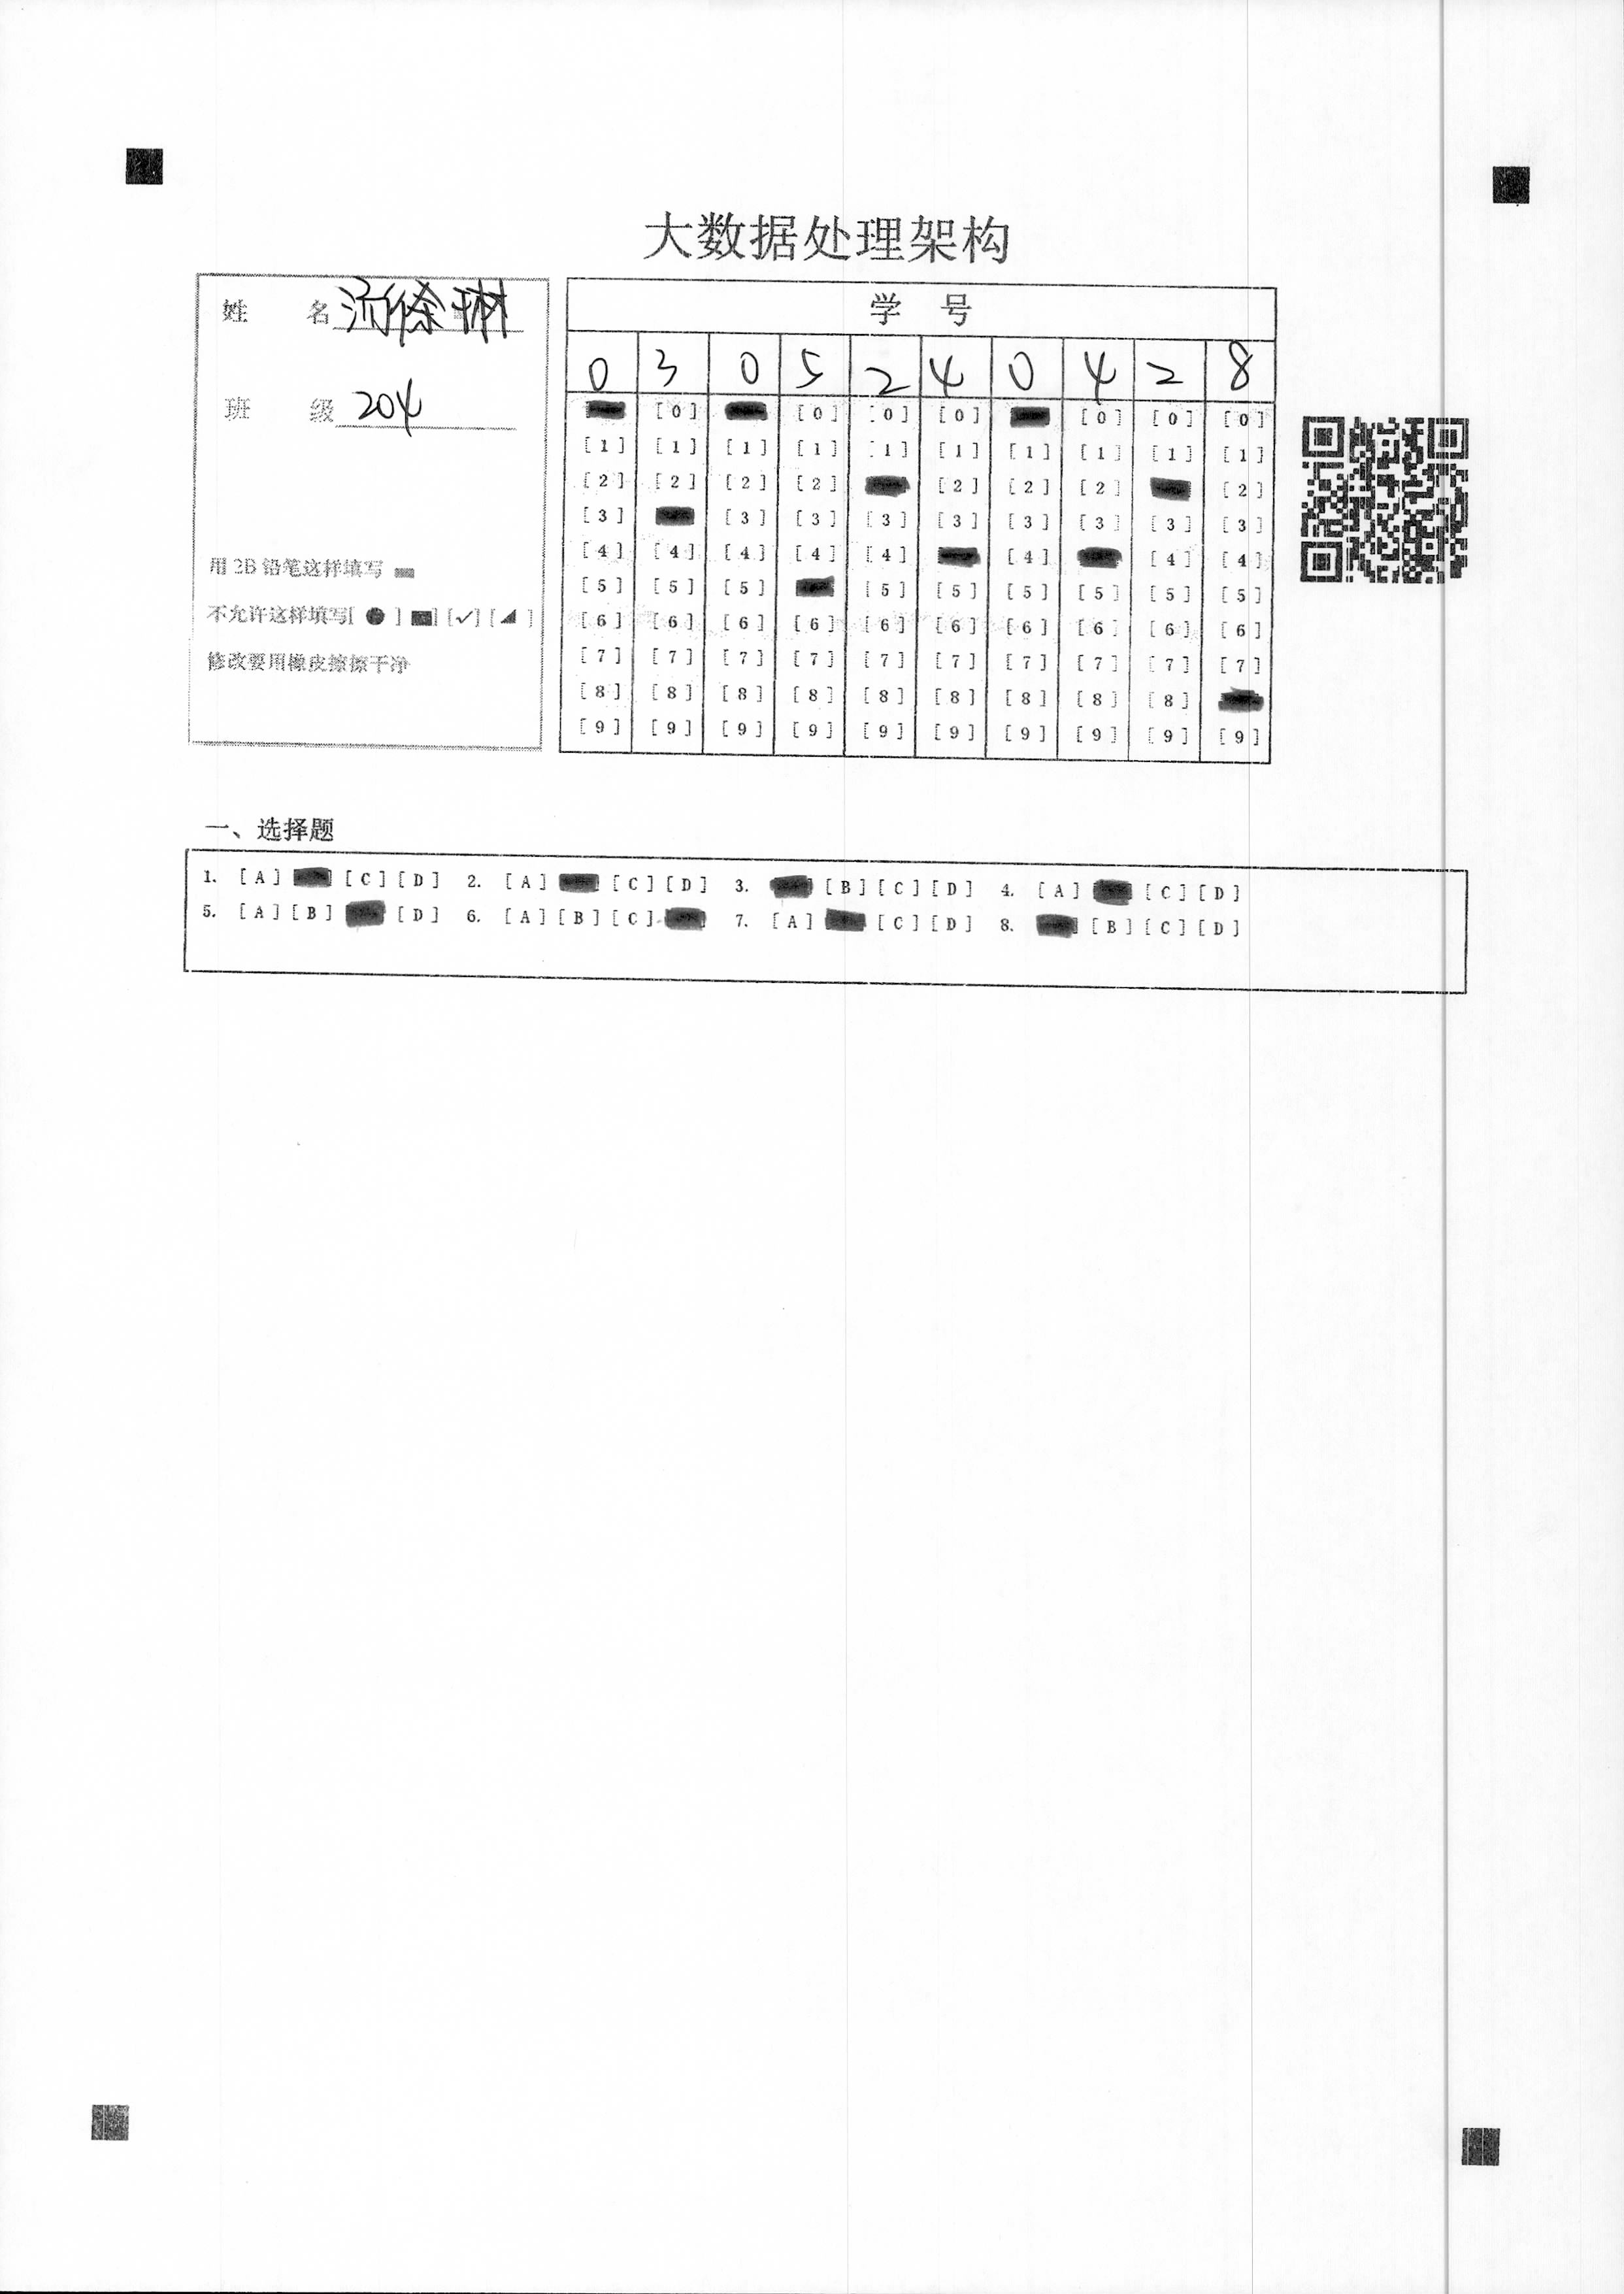 大数据处理架构
姓 名
班 级 204
用 2B 铅笔这样填写
不允许这样填写[ ● ] [■] [✓] [◢ ]
修改要用橡皮擦擦干净
学 号
0 3 0 5 2 4 0 4 2 8
[0] [0] [0] [0] [0] [0] [0]
[1] [1] [1] [1] [1] [1] [1] [1] [1] [1]
[2] [2] [2] [2] [2] [2] [2] [2]
[3] [3] [3] [3] [3] [3] [3] [3] [3]
[4] [4] [4] [4] [4] [4] [4] [4]
[5] [5] [5] [5] [5] [5] [5] [5] [5]
[6] [6] [6] [6] [6] [6] [6] [6] [6] [6]
[7] [7] [7] [7] [7] [7] [7] [7] [7] [7]
[8] [8] [8] [8] [8] [8] [8] [8] [8]
[9] [9] [9] [9] [9] [9] [9] [9] [9] [9]
一、选择题
1. [A] [C] [D] 2. [A] [C] [D] 3. [B] [C] [D] 4. [A] [C] [D]
5. [A] [B] [D] 6. [A] [B] [C] 7. [A] [C] [D] 8. [B] [C] [D]